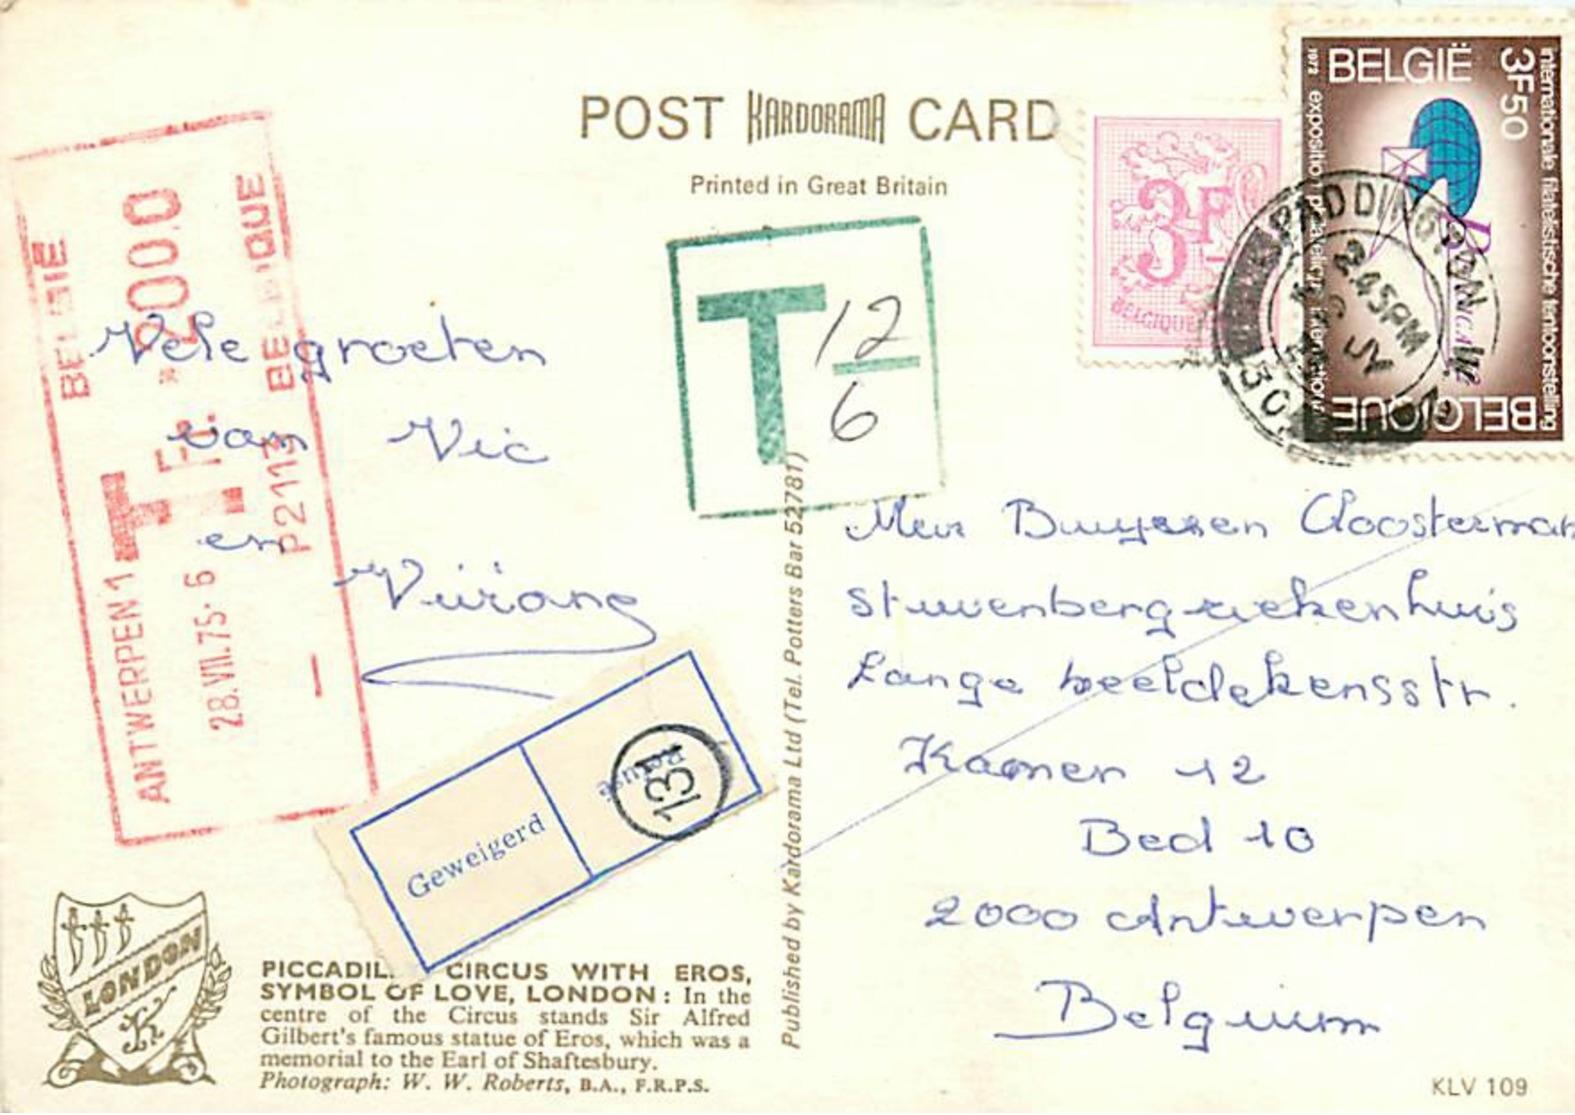 POST KARDORAMA CARD
Printed in Great Britain
BELGIË
3F50
internationale filatelistische tentoonstelling
1972 exposition philatélique internationale
BELGICA
BELGIQUE
3F
BELGIQUE
PADDINGTON W.2
2.45PM
JY
BELGIE
BELGIQUE
2000.0
T Fr.
P2113
ANTWERPEN 1
28.VII.75-6
T 12
6
Vele groeten
van Vic
en
Geweigerd
Refusé
131
Buyssen Cloosterman
Stuivenbergziekenhuis
Lange beeldekensstr.
Kamer 12
Bed 10
2000 Antwerpen
Belgium
LONDON
K
PICCADIL CIRCUS WITH EROS,
SYMBOL OF LOVE, LONDON: In the
centre of the Circus stands Sir Alfred
Gilbert's famous statue of Eros, which was a
memorial to the Earl of Shaftesbury.
Photograph: W. W. Roberts, B.A., F.R.P.S.
Published by Kardorama Ltd (Tel. Potters Bar 52781)
KLV 109